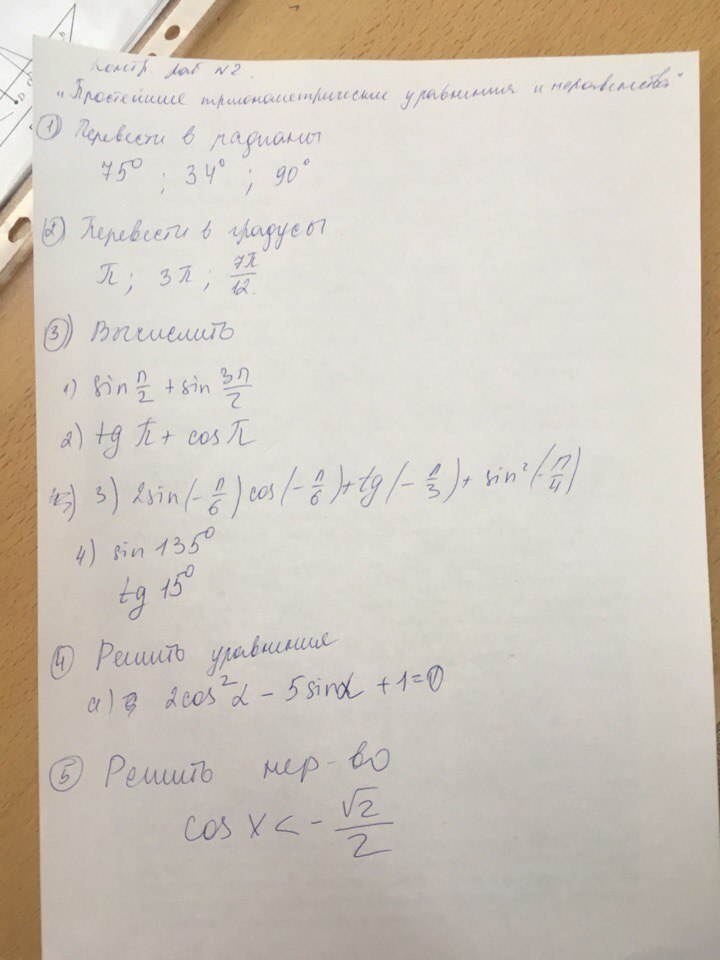 Контр. раб №2.
"Простейшие тригонометрические уравнения и неравенства"
1) Перевести в радианы
75°; 34°; 90°
2) Перевести в градусы
π; 3π; 7π/12.
3) Вычислить
1) sin π/2 + sin 3π/2
2) tg π + cos π
3) 2sin(-π/6)cos(-π/6)+tg(-π/3)+sin²(-π/4)
4) sin 135°
tg 15°
4 Решить уравнения
а) 2cos²α - 5sinα + 1=0
5 Решить нер-во
cos x < - √2/2